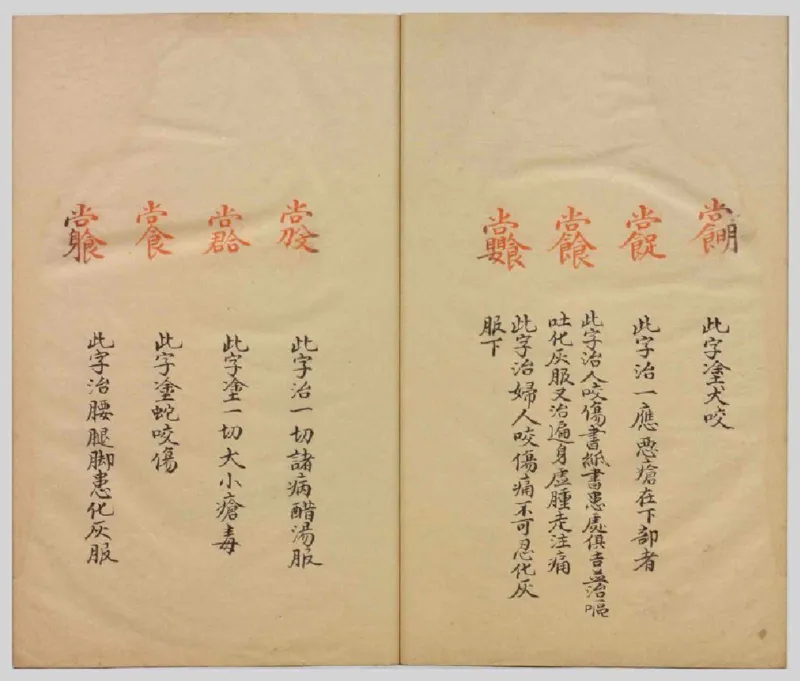 此字塗犬咬
此字治一應惡瘡在下部者
此字治人咬傷書紙書患處俱吉並治嘔
吐化灰服又治遍身虛腫走注痛
此字治婦人咬傷痛不可忍化灰
服下
此字治一切諸病醋湯服
此字塗一切大小瘡毒
此字塗蛇咬傷
此字治腰腿脚患化灰服